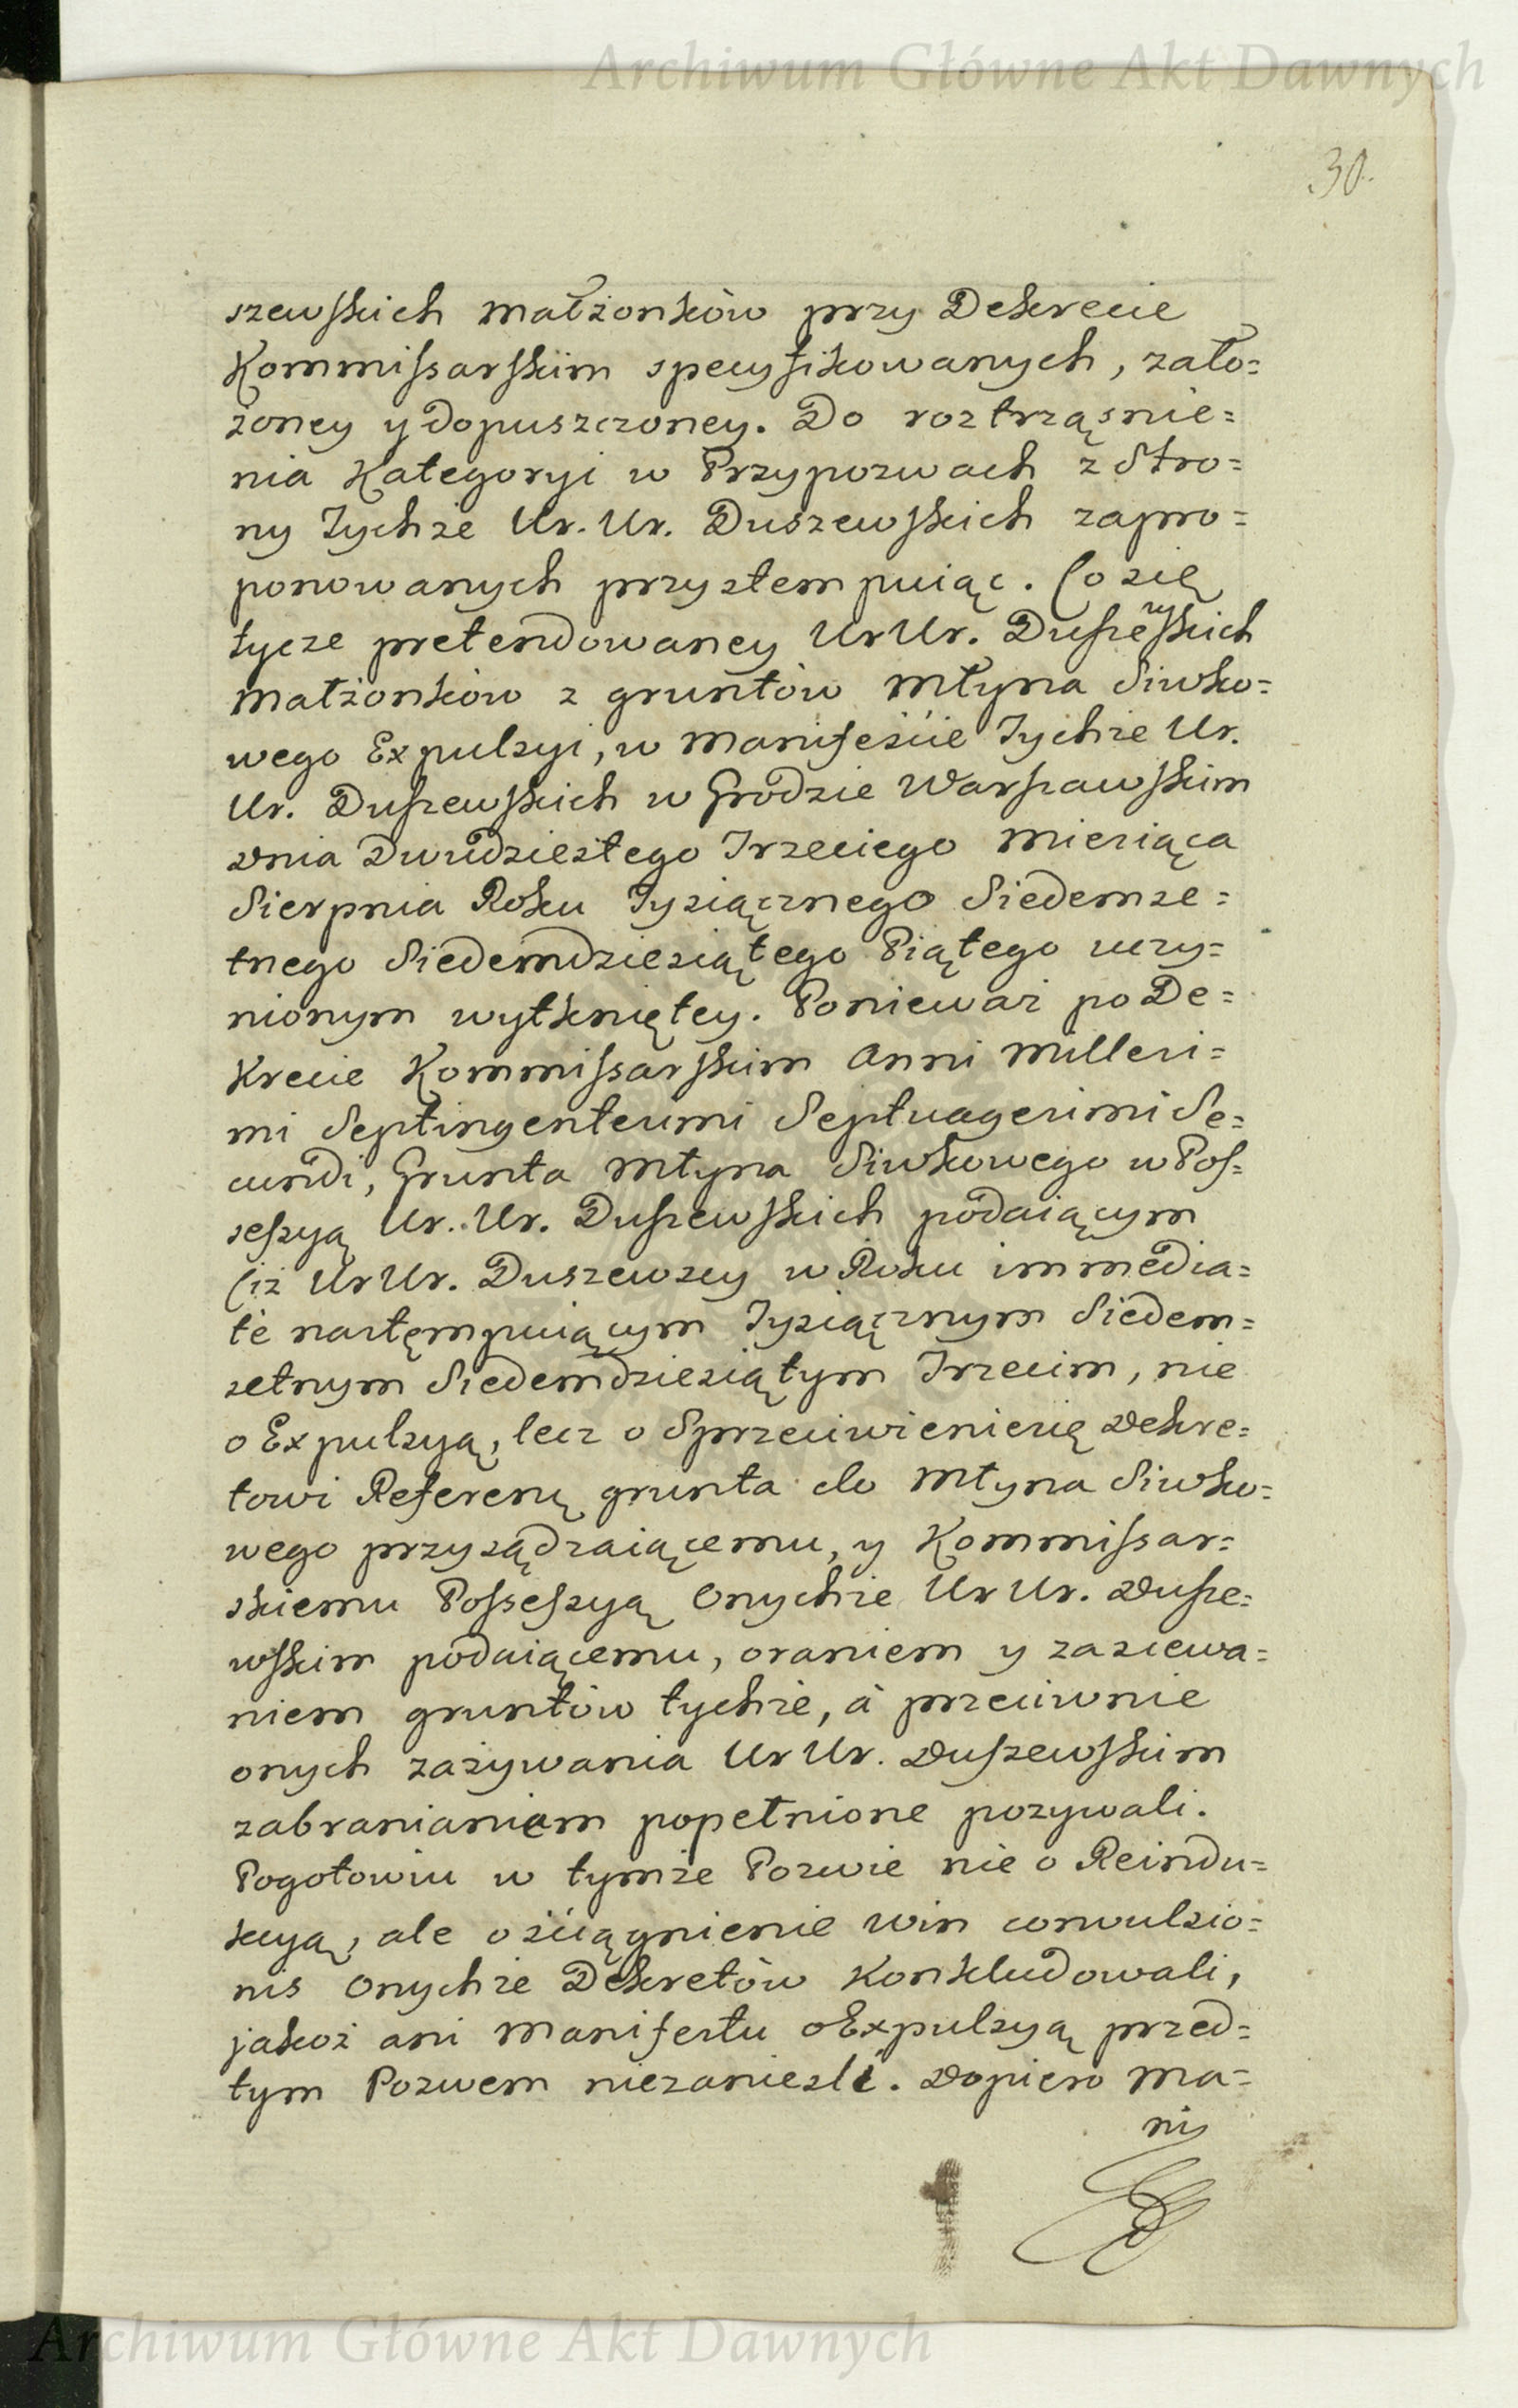 Archiwum Główne Akt Dawnych
30.
szewskich Małżonków przy Dekrecie
Kommissarskim specyfikowanych, zało=
żoney y dopuszczoney. Do roztrząsnie=
nia Kategoryi w Przypozwach z Stro=
ny Tychże Ur. Ur. Duszewskich zapro=
ponowanych przystempuiąc. Co się
tycze pretendowaney Ur Ur. Duszewskich
Małżonków z gruntów Młyna Siwko=
wego Expulsyi, w Manifeście Tychże Ur.
Ur. Duszewskich w Grodzie Warszawskim
dnia Dwudziestego Trzeciego Miesiąca
Sierpnia Roku Tysiącznego Siedemse=
tnego Siedemdziesiątego Piątego uczy=
nionym wytkniętey. Ponieważ po De=
krecie Kommissarskim Anni Millesi=
mi Septingentesimi Septuagesimi Se=
cundi, Grunta Młyna Siwkowego w Pos=
sessyą Ur. Ur. Duszewskich podaiącym
(iż Ur Ur. Duszewscy w Roku immedia=
tè nastęmpuiącym Tysiącznym Siedem=
setnym Siedemdziesiątym Trzecim, nie
o Expulsyą, lecz o Sprzeciwieniesię Dekre=
towi Referenij grunta do Młyna Siwko=
wego przysądzaiącemu, y Kommissar=
skiemu Possessyą Onychże Ur Ur. Dusze=
wskim podaiącemu, oraniem y zasiewa=
niem gruntów tychże, á przeciwnie
onych zażywania Ur Ur. Duszewskim
zabranianiem popełnione pozywali.
Pogotowiu w tymże Pozwie nie o Reindu=
kcyą, ale o ściągnienie win convulsio=
nis Onychże Dekretów Konkludowali,
jakoż ani Manifestu o Expulsyą przed=
tym Pozwem niezanieśli. Dopiero Ma=
ni
Archiwum Główne Akt Dawnych